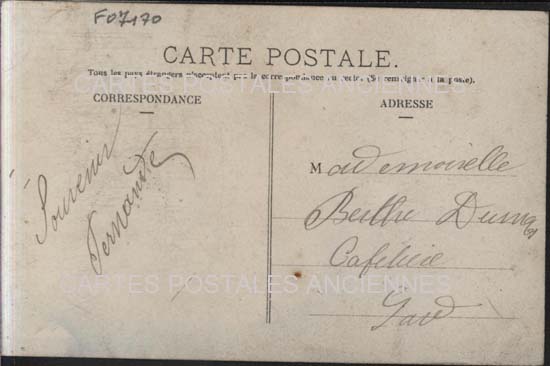 F07170
CARTE POSTALE.
Tous les pays étrangers n'acceptent pas la correspondance au recto. (Se renseigner à la poste).
CARTES POSTALES ANCIENNES
CORRESPONDANCE
ADRESSE
Souvenir
Fernande
Mademoiselle
Berthe Dumas
CARTES POSTALES ANCIENNES
Gard